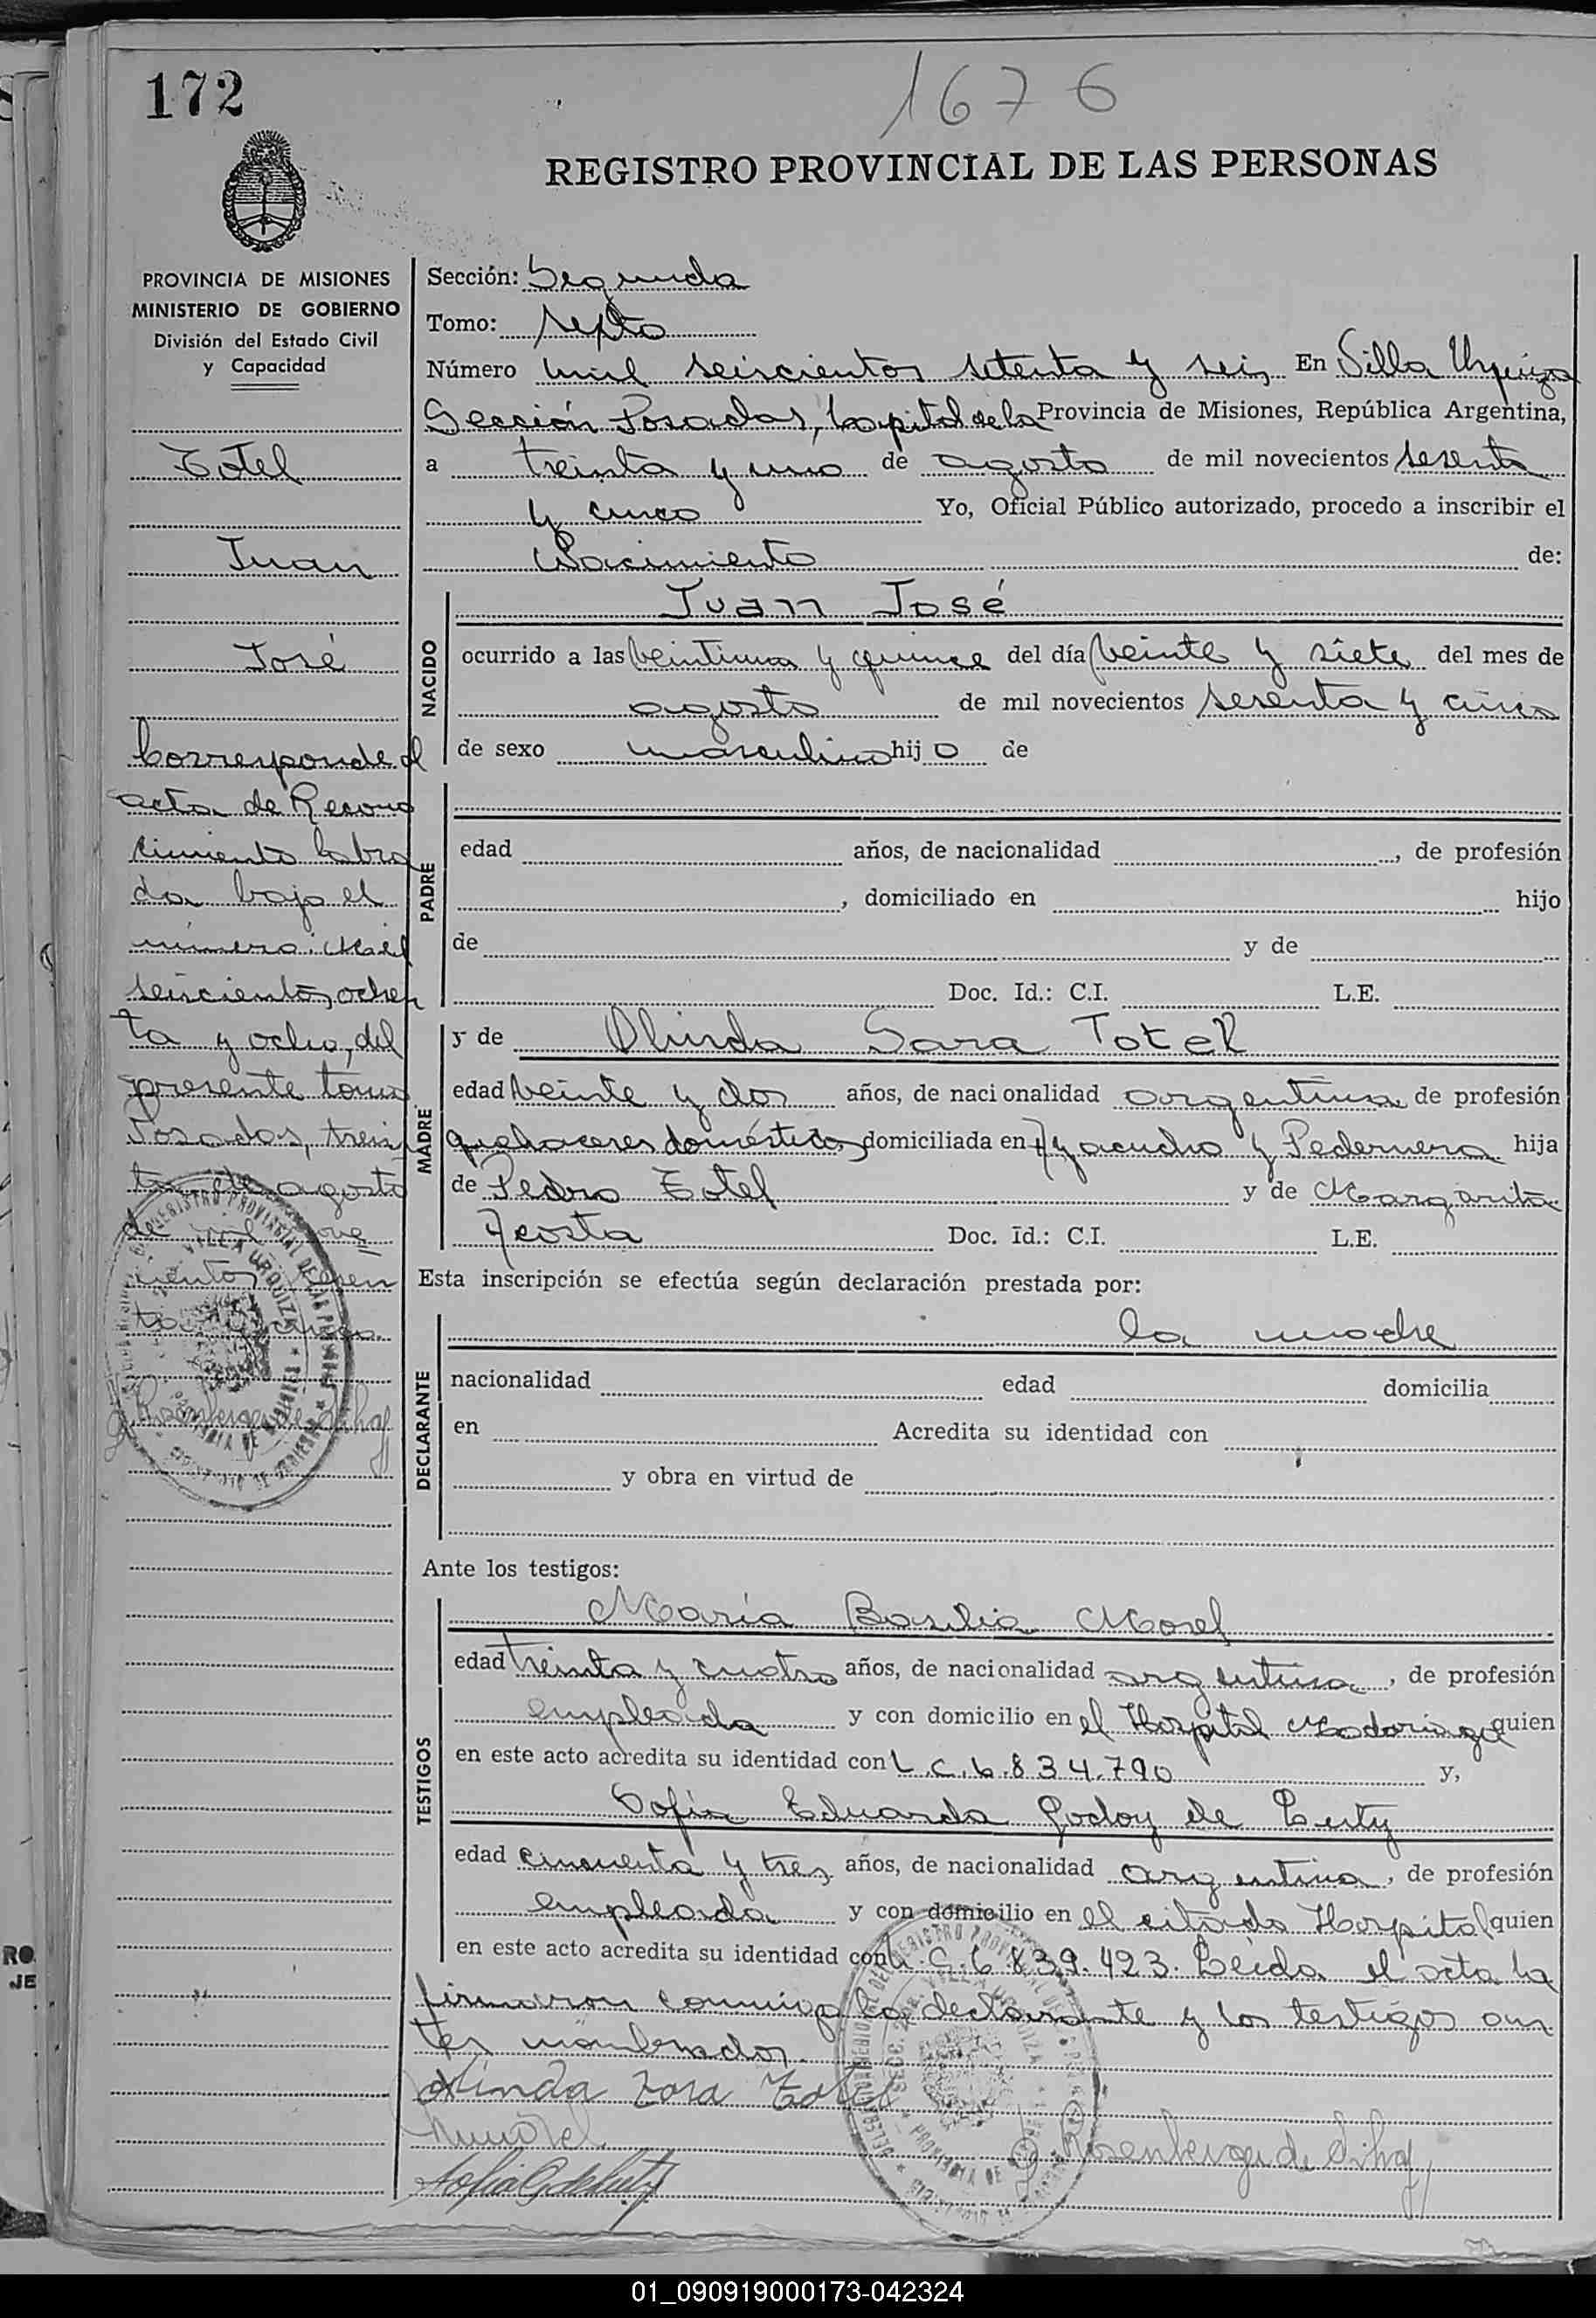 172
1676
REGISTRO PROVINCIAL DE LAS PERSONAS
PROVINCIA DE MISIONES
MINISTERIO DE GOBIERNO
División del Estado Civil
y Capacidad
Totel
Juan
José
Corresponde al
acta de Recono
cimiento labra
da bajo el
número: Mil
seiscientos ochen
ta y ocho, del
presente tomo
Posadas, trein
ta de agosto
de mil nove
cientos sesen
ta y cinco
Sección: Segunda
Tomo: septo
Número mil seiscientos setenta y seis En Villa Urquiza
Sección Posadas, Capital de la Provincia de Misiones, República Argentina,
a treinta y uno de agosto de mil novecientos sesenta
y cinco Yo, Oficial Público autorizado, procedo a inscribir el
Nacimiento de:
NACIDO
Juan José
ocurrido a las veintiuna y quince del día veinte y siete del mes de
agosto de mil novecientos sesenta y cinco
de sexo masculino hijo de
PADRE
edad años, de nacionalidad , de profesión
, domiciliado en hijo
de y de
Doc. Id.: C.I. L.E.
MADRE
y de Olinda Sara Totel
edad veinte y dos años, de nacionalidad argentina de profesión
quehaceres domésticos, domiciliada en Ayacucho y Pedernera hija
de Pedro Totel y de Margarita
Acosta Doc. Id.: C.I. L.E.
Esta inscripción se efectúa según declaración prestada por:
DECLARANTE
la madre
nacionalidad edad domicilia
en Acredita su identidad con
y obra en virtud de
Ante los testigos:
TESTIGOS
María Basilia Morel
edad treinta y cuatro años, de nacionalidad argentina, de profesión
empleada y con domicilio en el Hospital Madariaga quien
en este acto acredita su identidad con L.C.6.834.790 y,
Sofía Eduarda Godoy de
edad cincuenta y tres años, de nacionalidad argentina, de profesión
empleada y con domicilio en el citado Hospital quien
en este acto acredita su identidad con L.C.6.839.423. Leída el acta la
firmaron conmigo la declarante y los testigos an
tes nombrados.
Olinda Zara Totel
MBMorel
RO
JE
01_090919000173-042324